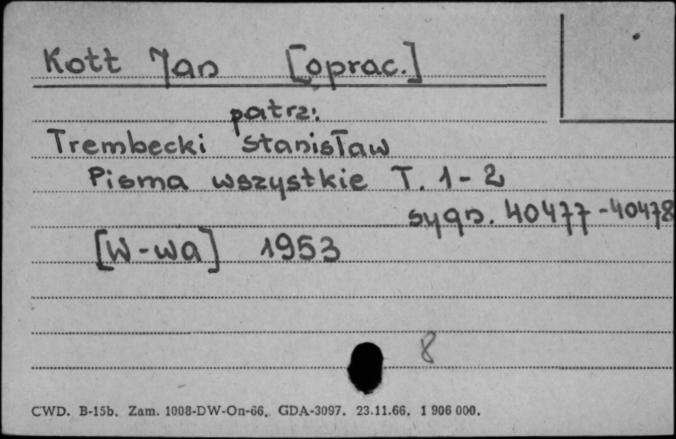 Kott Jan [oprac.]
patrz:
Trembecki Stanisław
Pisma wszystkie T. 1-2
sygn. 40477-40478
[W-wa] 1953
8
CWD. B-15b. Zam. 1008-DW-On-66. GDA-3097. 23.11.66. 1 906 000.